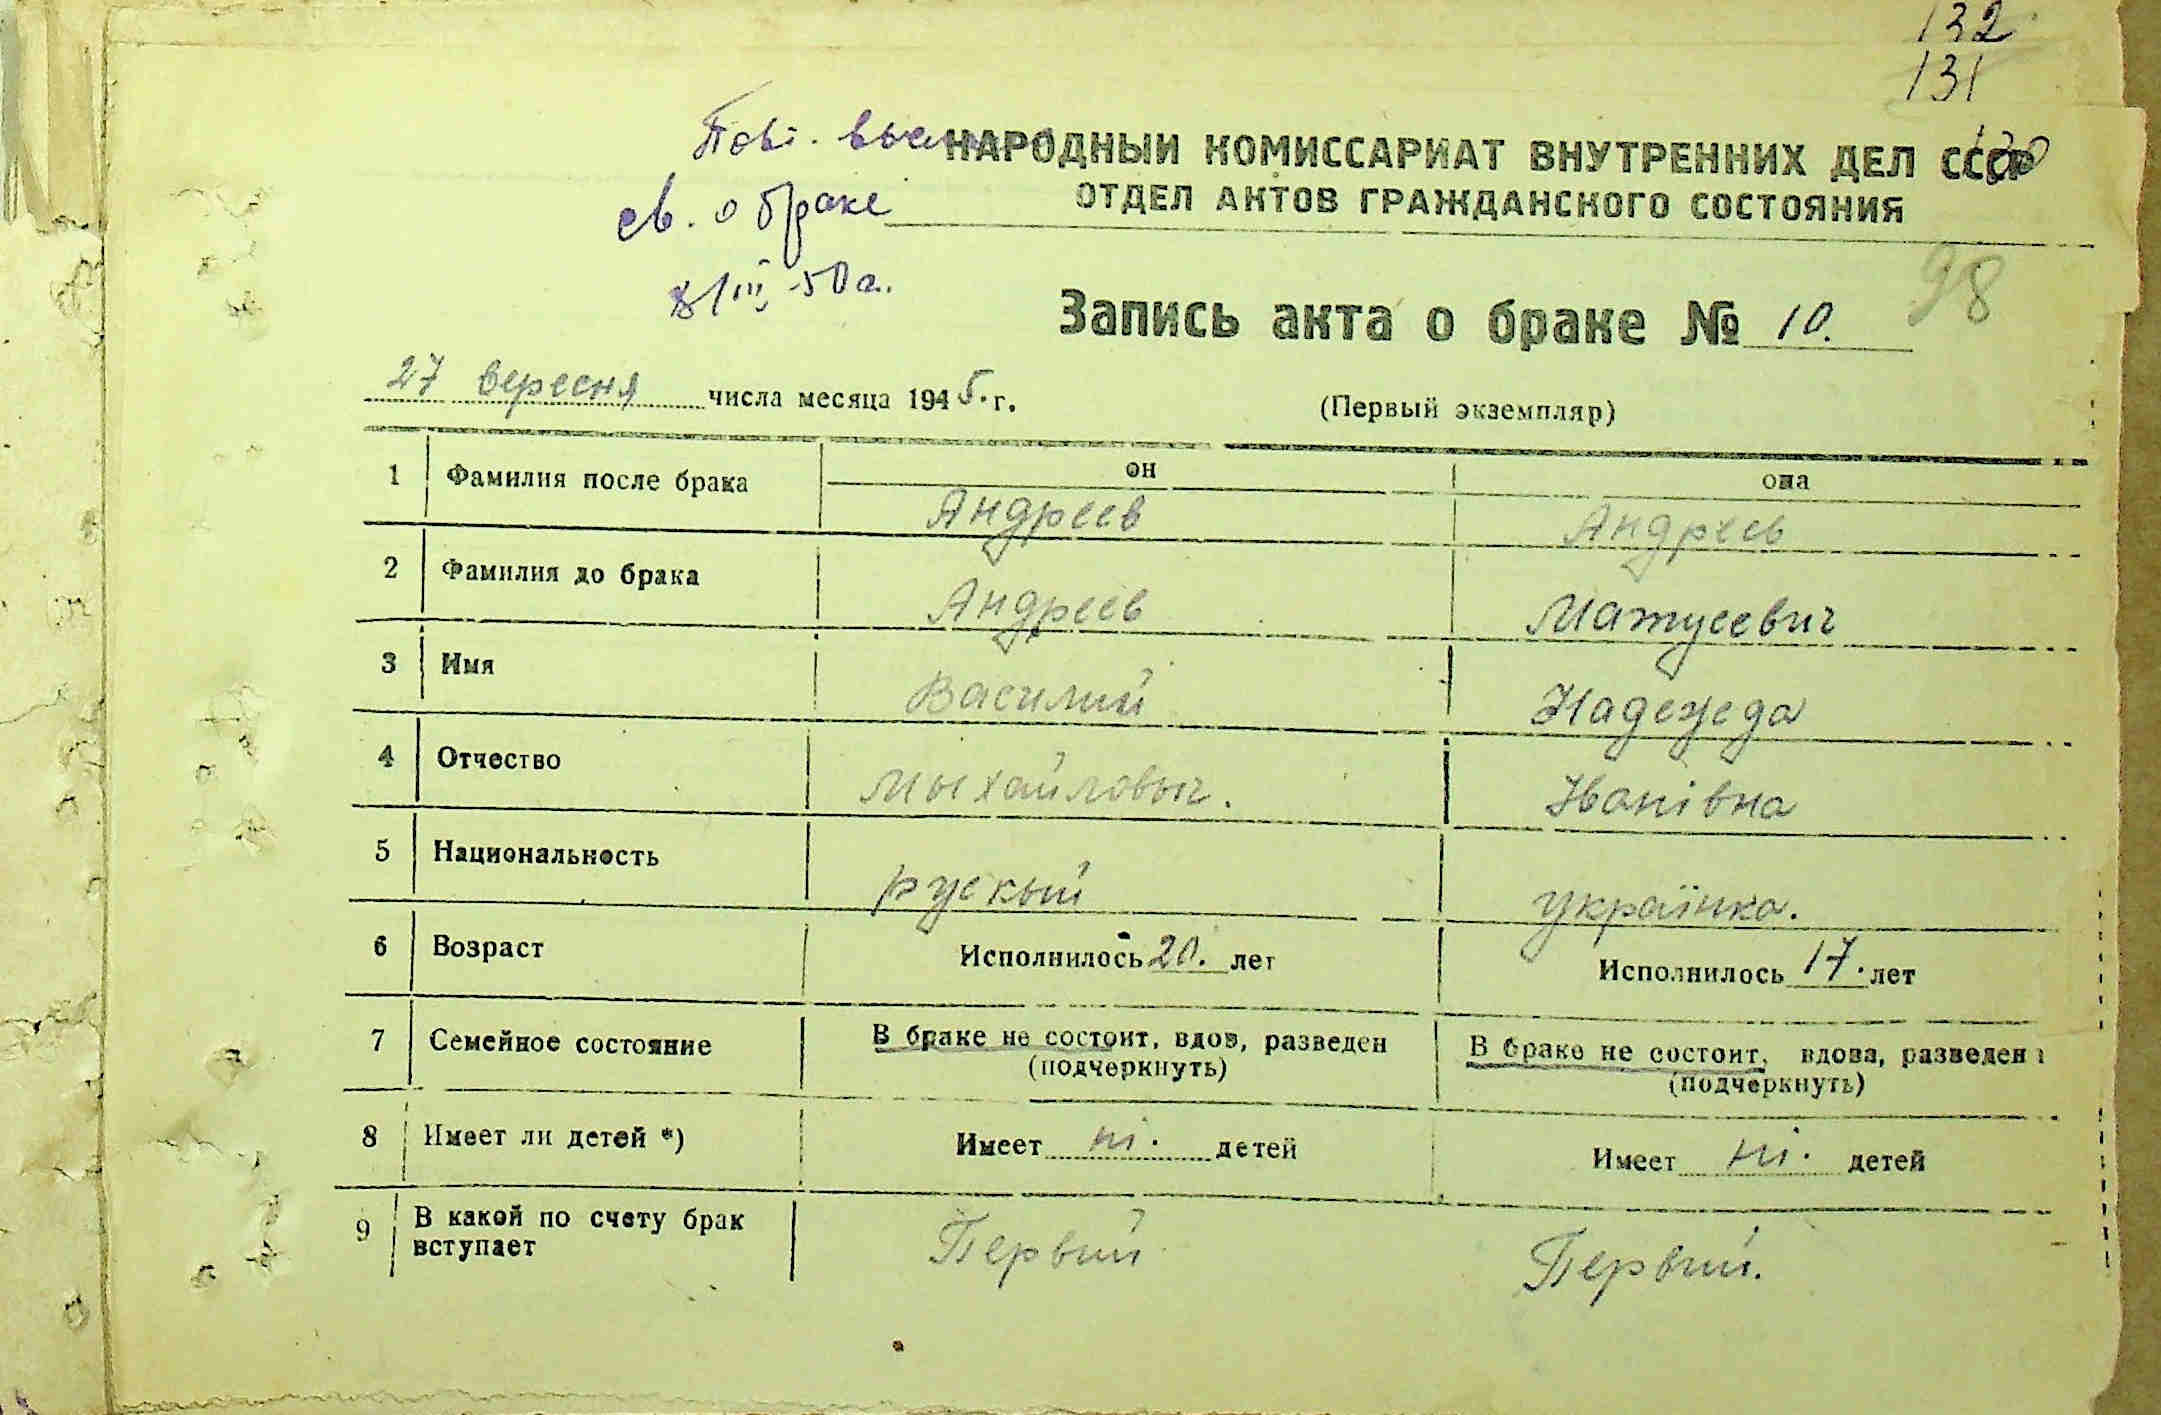 132
131
130
Повт.
НАРОДНЫЙ КОМИССАРИАТ ВНУТРЕННИХ ДЕЛ СССР
св. о браке
ОТДЕЛ АКТОВ ГРАЖДАНСКОГО СОСТОЯНИЯ
8/III 50 г.
98
Запись акта о браке № 10.
27 вересня числа месяца 1945. г.
(Первый экземпляр)
1 Фамилия после брака он Андреев она Андреев
2 Фамилия до брака Андреев Матусевич
3 Имя Василий Надежда
4 Отчество Мыхайловыч. Іванівна
5 Национальность рускый українка.
6 Возраст Исполнилось 20. лет Исполнилось 17. лет
7 Семейное состояние В браке не состоит, вдов, разведен В браке не состоит, вдова, разведена
(подчеркнуть) (подчеркнуть)
8 Имеет ли детей *) Имеет ні. детей Имеет ні. детей
9 В какой по счету брак
вступает Первий Первий.